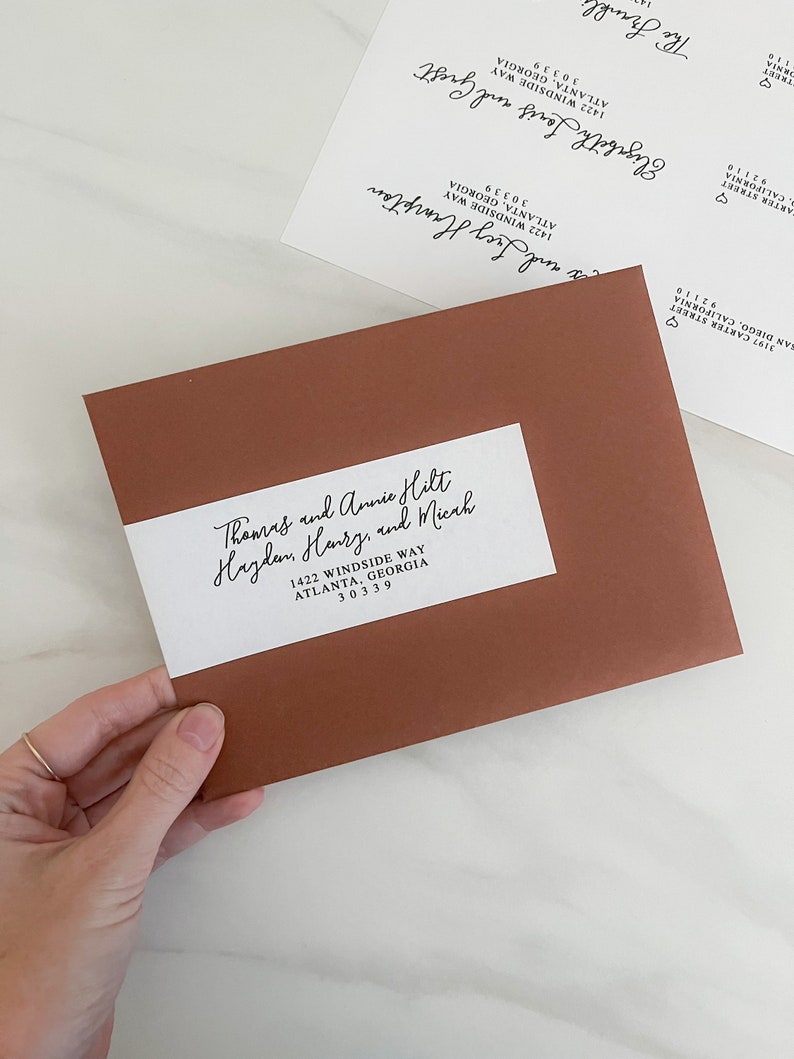 Thomas and Annie Hilt
Hayden, Henry, and Micah
1422 WINDSIDE WAY
ATLANTA, GEORGIA
30339
and Lucy Hampton
1422 WINDSIDE WAY
ATLANTA, GEORGIA
30339
Elizabeth Louis and Guest
1422 WINDSIDE WAY
ATLANTA, GEORGIA
30339
The
1422
3197 CARTER STREET
SAN DIEGO, CALIFORNIA
92110
CARTER STREET
CALIFORNIA
92110
STREET